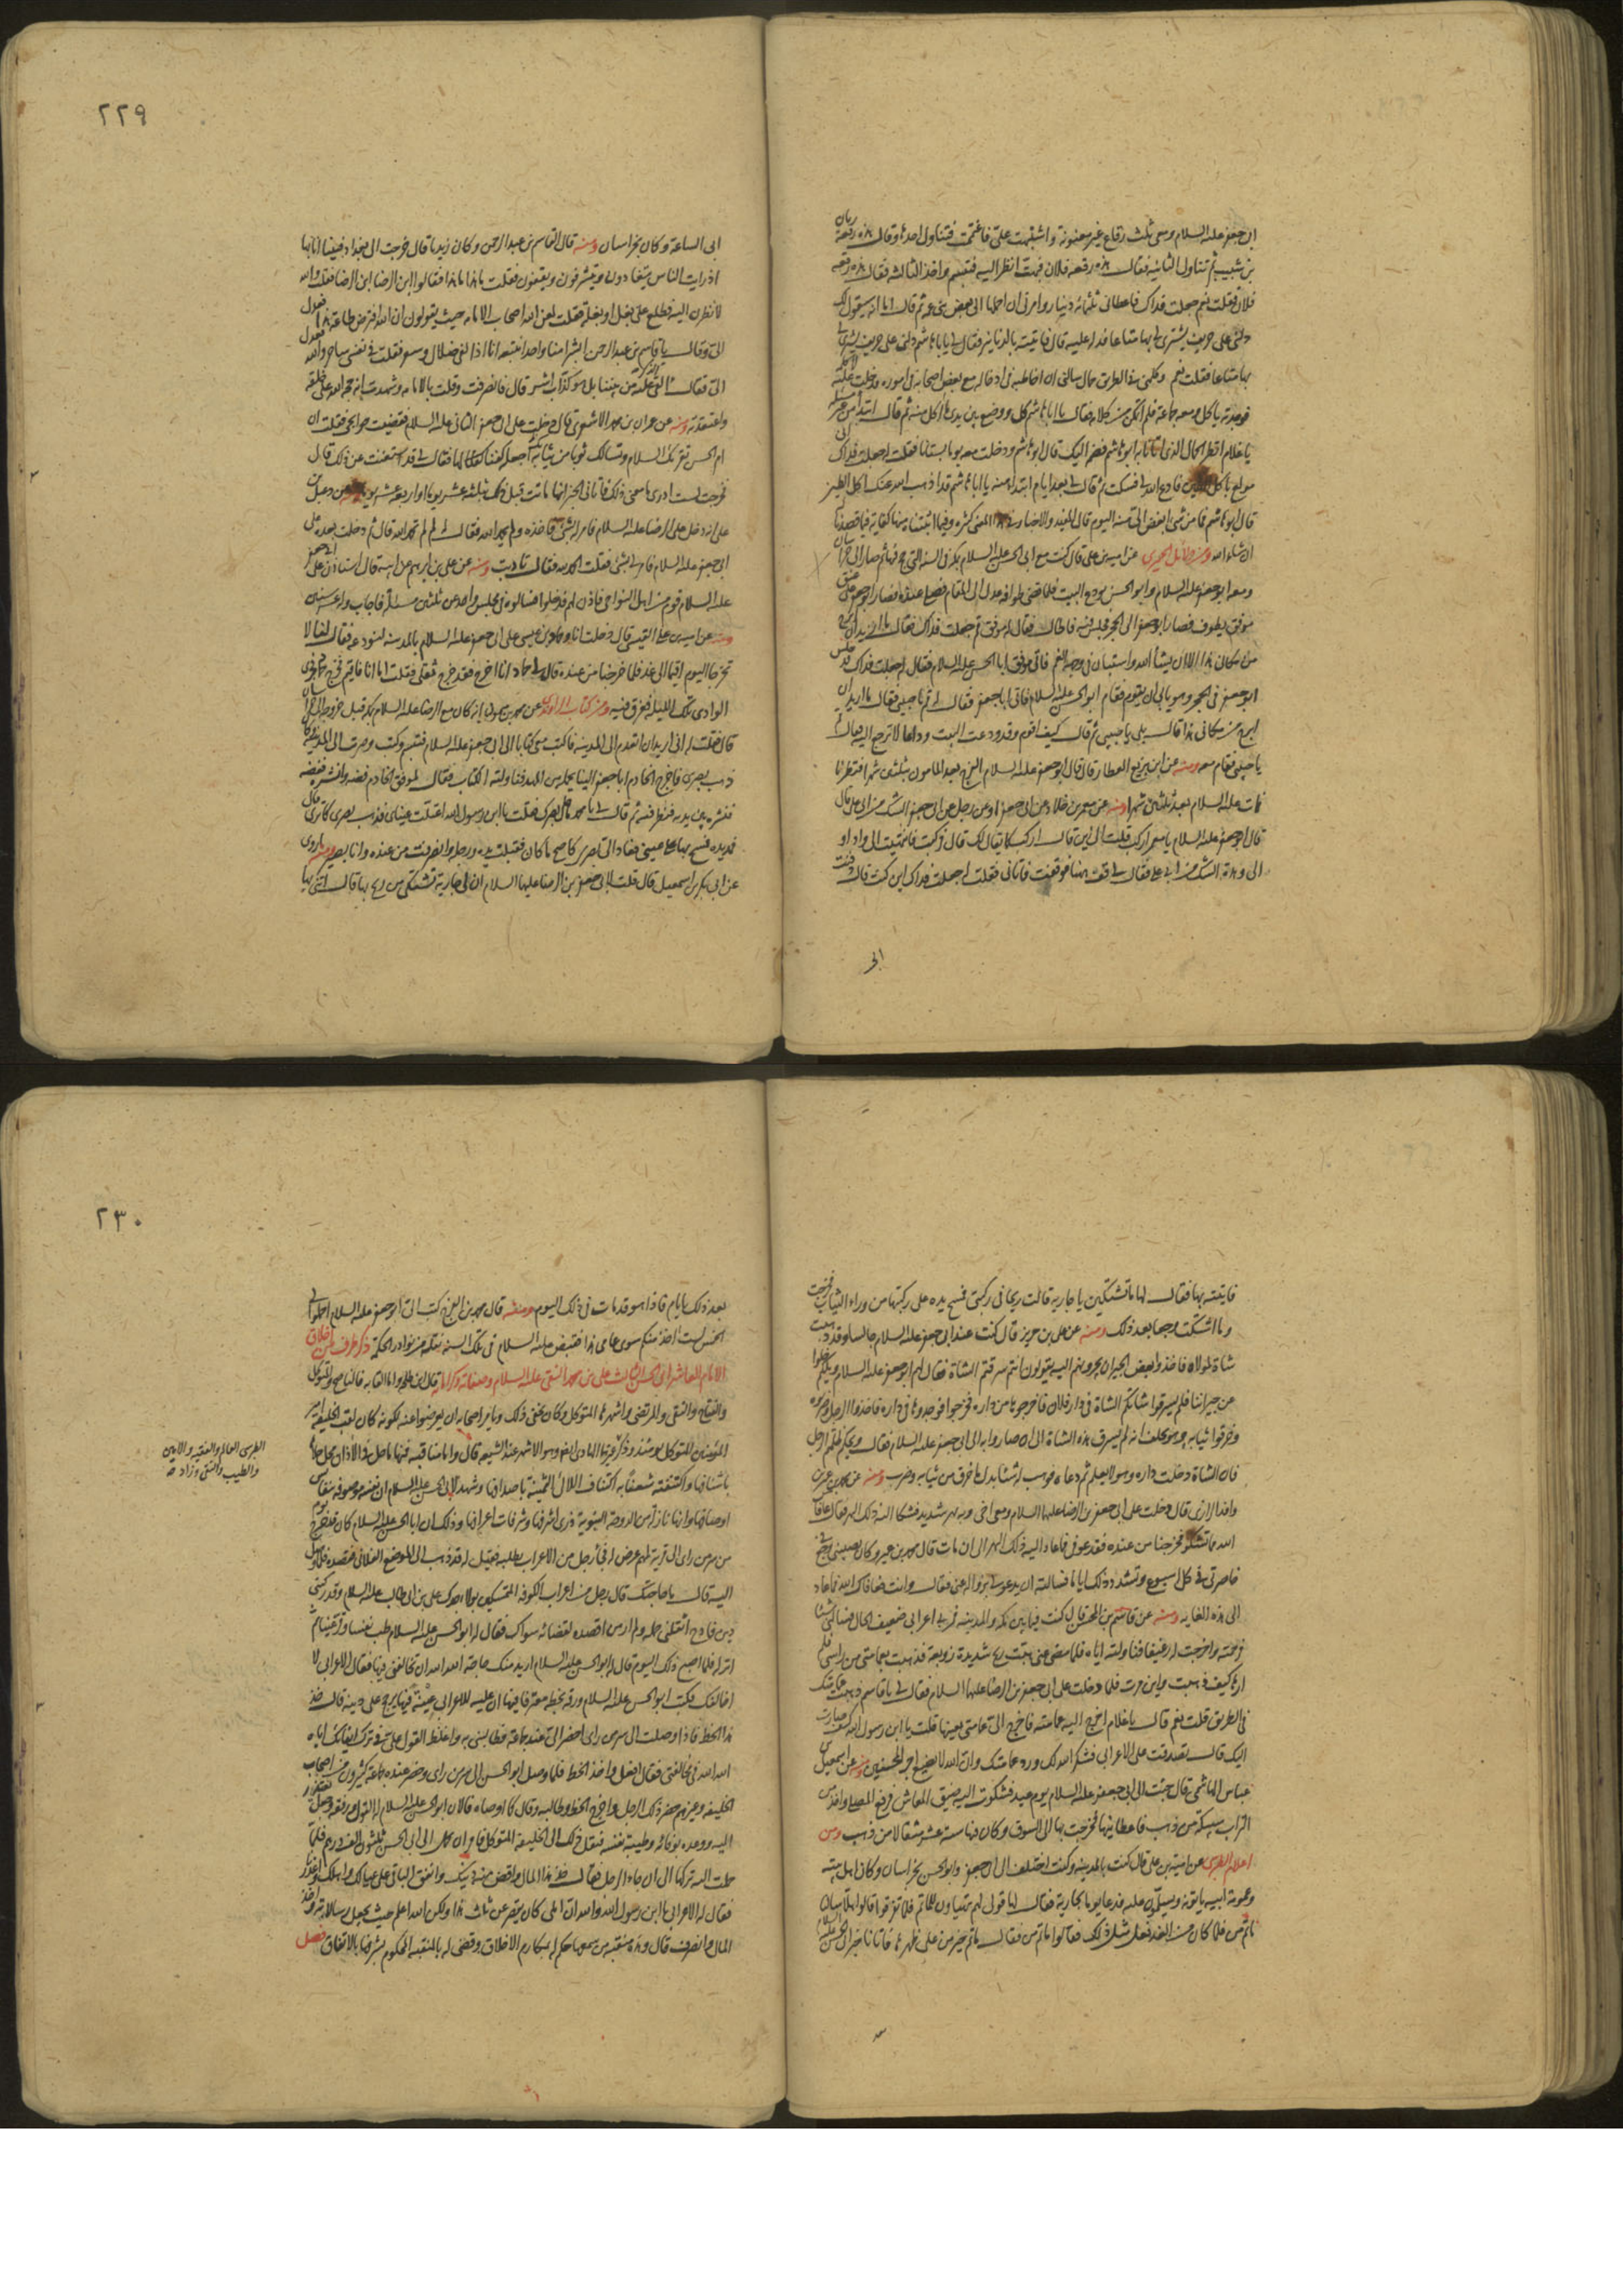 ابی جعفر علیه السلام ومعی ثلث رقاع غیر معنونة واشتبهت علی فاغتممت فتناول احدها وقال هذه رقعة ریان
بن شبیب ثم تناول الثانیه فقال هذه رقعه فلان فبهت انظر الیه فتبسم واخذ الثالثه فقال هذه رقعه
فلان فقلت نعم جعلت فداک فاعطانی ثلثمائه دینار وامرنی ان احملها الی بعض بنی عمه ثم قال اما انه سیقول لک
دلنی علی حریف یشتری لی بها متاعا فدله علیه قال فاتیته بالدنانیر فقال لی یا ابا هاشم دلنی علی حریف یشتری لی
بها متاعا فقلت نعم وکلمنی فی الطریق جمال سالنی ان اخاطبه فی ادخاله مع بعض اصحابه فی اموره فدخلت علیه لاکلمه
فوجدته یاکل ومعه جماعة فلم اتمکن من کلامه فقال یا ابا هاشم کل ووضع بین یدی ما اکل منه ثم قال ابتداء من غیر مسئلة
یا غلام انظر الجمال الذی اتانا به ابو هاشم فضمه الیک قال ابو هاشم ودخلت معه یوما بستانا فقلت له جعلت فداک انی
مولع باکل الطین فادع الله لی فسکت ثم قال لی بعد ایام ابتداء منه یا ابا هاشم قد اذهب الله عنک اکل الطین
قال ابو هاشم فما من شئ ابغض الی منه الیوم قال المفید والاخبار فی هذا المعنی کثیره وفیما اثبتنا منها کفایة فیما قصدنا
ان شاء الله ومن دلائل الحمیری عن امیة بن علی قال کنت مع ابی الحسن علیه السلام بمکه فی السنه التی حج فیها ثم صار الی خراسان
ومعه ابو جعفر علیه السلام وابو الحسن یودع البیت فلما قضی طوافه عدل الی المقام فصلی عنده فصار ابو جعفر علی عنق
موفق یطوف به فصار ابو جعفر الی الحجر فجلس فیه فاطال فقال له موفق قم جعلت فداک فقال ما ارید ان ابرح
من مکانی هذا الا ان یشاء الله واستبان فی وجهه الغم فاتی موفق ابا الحسن علیه السلام فقال له جعلت فداک قد جلس
ابو جعفر فی الحجر وهو یابی ان یقوم فقام ابو الحسن علیه السلام فاتی ابا جعفر فقال له قم یا حبیبی فقال ما ارید ان
ابرح من مکانی هذا قال بلی یا حبیبی ثم قال کیف اقوم وقد ودعت البیت وداعا لا ترجع الیه فقال قم
یا حبیبی فقام معه ومنه عن ابن بزیع العطار قال قال ابو جعفر علیه السلام الفرج بعد المامون بثلثین شهرا فنظرنا
فمات علیه السلام بعد ثلثین شهرا ومنه عن معمر بن خلاد عن ابی جعفر او عن رجل عن ابی جعفر الشک من ابی علی قال
قال ابو جعفر علیه السلام یا معمر ارکب قلت الی این قال ارکب کما یقال لک قال فرکبت فانتهیت الی واد او
الی وهدة الشک من ابی علی فقال لی قف ههنا فوقفت فاتانی فقلت له جعلت فداک این کنت قال دفنت
ابی
٢٢٩
ابی الساعة وکان بخراسان ومنه قال القاسم بن عبد الرحمن وکان زیدیا قال خرجت الی بغداد فبینا انا بها
اذ رایت الناس یتعادون ویتشرفون ویقفون فقلت ما هذا فقالوا ابن الرضا ابن الرضا فقلت والله
لانظرن الیه فطلع علی بغل او بغلة فقلت لعن الله اصحاب الامامه حیث یقولون ان الله افترض طاعة هذا فعدل
الی وقال یا قاسم بن عبد الرحمن ابشرا منا واحدا نتبعه انا اذا لفی ضلال وسعر فقلت فی نفسی ساحر والله فعدل
الی فقال أالقی الذکر علیه من بیننا بل هو کذاب اشر قال فانصرفت وقلت بالامامه وشهدت انه حجة الله علی خلقه
واعتقدته ومنه عن عمران بن محمد الاشعری قال دخلت علی ابی جعفر الثانی علیه السلام فقضیت حوائجی فقلت ان
ام الحسن تقرئک السلام وتسالک ثوبا من ثیابک اجعله کفنا لها فقال لی قد استغنت عن ذلک قال
فخرجت لست ادری ما معنی ذلک فاتانی الخبر انها ماتت قبل ذلک بثلثة عشر یوما او اربعة عشر یوما ومنه عن دعبل بن
علی انه دخل علی الرضا علیه السلام فامر له بشئ فاخذه ولم یحمد الله فقال له لم لم تحمد الله قال ثم دخلت بعده علی
ابی جعفر علیه السلام فامر لی بشئ فقلت الحمد لله فقال تادبت ومنه عن علی بن ابرهیم عن ابیه قال استاذن علی ابی جعفر
علیه السلام قوم من اهل النواحی فاذن لهم فدخلوا فسالوه فی مجلس واحد عن ثلثین مسئلة فاجاب وله عشر سنین
ومنه عن امیة بن علی القیسی قال دخلت انا وحماد بن عیسی علی ابی جعفر علیه السلام بالمدینه لنودعه فقال لنا لا
تخرجا الیوم اقیما الی غد فلما خرجنا من عنده قال لی حماد انا اخرج فقد خرج ثقلی فقلت اما انا فاقیم فخرج حماد فجری
الوادی تلک اللیله فغرق فیه ومن کتاب الراوندی عن محمد بن میمون انه کان مع الرضا علیه السلام بمکه قبل خروجه الی خراسان
قال فقلت له انی ارید ان اتقدم الی المدینه فاکتب معی کتابا الی ابی جعفر علیه السلام فتبسم وکتب وصرت الی المدینة وقد کان
ذهب بصری فاخرج الخادم ابا جعفر الینا یحمله من المهد فناولته الکتاب فقال لموفق الخادم فضه وانشره ففضه
ونشره بین یدیه فنظر فیه ثم قال لی یا محمد ما حال بصرک فقلت یا ابن رسول الله اعتلت عینای فذهب بصری کما تری قال
فمد یده فمسح بها علی عینی فعاد الی بصری کاصح ما کان فقبلت یده ورجله وانصرفت من عنده وانا بصیر ومنه ما روی
عن ابی بکر بن اسمعیل قال قلت لابی جعفر بن الرضا علیهما السلام ان لی جاریة تشتکی من ریح بها قال ائتنی بها
فاتیته بها فقال لها ما تشتکین یا جاریه قالت ریحا فی رکبتی فمسح یده علی رکبتها من وراء الثیاب فخرجت
وما اشتکت وجعا بعد ذلک ومنه عن علی بن جریر قال کنت عند ابی جعفر علیه السلام جالسا وقد ذهبت
شاة لمولاه فاخذوا بعض الجیران یجرونهم الیه یقولون انتم سرقتم الشاة فقال لهم ابو جعفر علیه السلام ویلکم خلوا
عن جیراننا فلم یسرقوا شاتکم الشاة فی دار فلان فاخرجوها من داره فخرجوا فوجدوها فی داره فاخذوا الرجل وضربوه
وخرقوا ثیابه وهو یحلف انه لم یسرق هذه الشاة الی ان صاروا به الی ابی جعفر علیه السلام فقال ویحکم ظلمتم الرجل
فان الشاة دخلت داره وهو لا یعلم ثم دعاه فوهب له شیئا بدل ما خرق من ثیابه وضربه ومنه عن محمد بن عمیر بن
واقد الرازی قال دخلت علی ابی جعفر بن الرضا علیهما السلام ومعی اخی وبه بهر شدید فشکا الیه ذلک البهر فقال عافاک
الله مما تشکو فخرجنا من عنده وقد عوفی فما عاد الیه ذلک البهر الی ان مات قال محمد بن عمیر وکان یصیبنی وجع فی
خاصرتی فی کل اسبوع وتشتد ذلک ایاما فسالته ان یدعو لی بزواله عنی فقال وانت فعافاک الله فما عاد
الی هذه الغایه ومنه عن قاسم بن المحسن قال کنت فیما بین مکه والمدینه فمر بی اعرابی ضعیف الحال فسالنی شیئا
فرحمته واخرجت له رغیفا فناولته ایاه فلما مضی عنی هبت ریح شدیدة زوبعة فذهبت بعمامتی من راسی فلم
ارها کیف ذهبت واین مرت فلما دخلت علی ابی جعفر بن الرضا علیهما السلام فقال لی یا قاسم ذهبت عمامتک
فی الطریق قلت نعم قال یا غلام اخرج الیه عمامته فاخرج الی عمامتی بعینها قلت یا ابن رسول الله کیف صارت
الیک قال تصدقت علی الاعرابی فشکر الله لک ورد عمامتک وان الله لا یضیع اجر المحسنین ومنه عن اسمعیل بن
عباس الهاشمی قال جئت الی ابی جعفر علیه السلام یوم عید فشکوت الیه ضیق المعاش فرفع المصلی واخذ من
التراب سبیکة من ذهب فاعطانیها فخرجت بها الی السوق وکان فیها ستة عشر مثقالا من ذهب ومن
اعلام الطبرسی عن امیة بن علی قال کنت بالمدینه وکنت اختلف الی ابی جعفر وابو الحسن بخراسان وکان اهل بیته
وعمومة ابیه یاتونه ویسلمون علیه فدعا یوما بجاریة فقال لها قولی لهم یتهیاون للماتم فلما تفرقوا قالوا هلا سالناه
ماتم من فلما کان من الغد فعل مثل ذلک فقالوا ماتم من فقال ماتم خیر من علی ظهرها فاتانا خبر ابی الحسن علیه السلام
بعد
٢٣٠
بعد ذلک بایام فاذا هو قد مات فی ذلک الیوم ومنه قال محمد بن الفرج کتب الی ابو جعفر علیه السلام احملوا الی
الخمس لست اخذه منکم سوی عامی هذا فقبض علیه السلام فی تلک السنه نقلته من نوادر الحکمة ذکر طرف من اخلاق
الامام العاشر ابی الحسن الثالث علی بن محمد النقی علیه السلام وصفاته وکراماته قال ابن طلحه واما القابه فالناصح والمتوکل
والفتاح والنقی والمرتضی واشهرها المتوکل وکان یخفی ذلک ویامر اصحابه ان یعرضوا عنه لکونه کان لقب الخلیفه امیر
المؤمنین المتوکل یومئذ وذکر غیره الهادی ایضا وهو الاشهر عند الشیعه قال واما مناقبه فمنها ما حل فی الاذان محل حلاها
باشنافها واکتنفته شغفا به اکتناف اللالئ الثمینة باصدافها وشهد لابی الحسن علیه السلام ان نفسه موصوفه بنفائس
اوصافها وانها نازلة من الدوحة النبویة فی ذری اشرافها وشرفات اعرافها وذلک ان ابا الحسن علیه السلام کان قد خرج یوما
من سر من رای الی قریة لمهم عرض له فجاء رجل من الاعراب یطلبه فقیل له قد ذهب الی الموضع الفلانی فقصده فلما وصل
الیه قال ما حاجتک قال رجل من اعراب الکوفه المتمسکین بولاء جدک علی بن ابی طالب علیه السلام وقد رکبنی
دین فادح اثقلنی حمله ولم ار من اقصده لقضائه سواک فقال له ابو الحسن علیه السلام طب نفسا وقر عینا ثم
انزله فلما اصبح ذلک الیوم قال له ابو الحسن علیه السلام ارید منک حاجة الله الله ان تخالفنی فیها فقال الاعرابی لا
اخالفک فکتب ابو الحسن علیه السلام ورقة بخطه معترفا فیها ان علیه للاعرابی مالا عینه فیها یرجح علی دینه قال خذ
هذا الخط فاذا وصلت الی سر من رای احضر الی عندی جماعة فطالبنی به واغلظ القول علی فی ترک ایفائک ایاه
الله الله فی مخالفتی فقال افعل واخذ الخط فلما وصل ابو الحسن الی سر من رای وحضر عنده جماعة کثیرون من اصحاب
الخلیفه وغیرهم حضر ذلک الرجل واخرج الخط وطالبه وقال کما اوصاه فالان ابو الحسن علیه السلام له القول ورفقه وجعل یعتذر
الیه ووعده بوفائه وطیبة نفسه فنقل ذلک الی الخلیفة المتوکل فامر ان یحمل الی ابی الحسن ثلثون الف درهم فلما
حملت الیه ترکها الی ان جاء الرجل فقال خذ هذا المال واقض منه دینک وانفق الباقی علی عیالک واهلک واعذرنا
فقال له الاعرابی یا ابن رسول الله والله ان املی کان یقصر عن ثلث هذا ولکن الله اعلم حیث یجعل رسالاته واخذ
المال وانصرف قال وهذه منقبة من سمعها حکم له بمکارم الاخلاق وقضی له بالمنقبه المحکوم بشرفها بالاتفاق فصل
الطبرسی العالم والفقیه والامین
والطیب والنقی وزاد